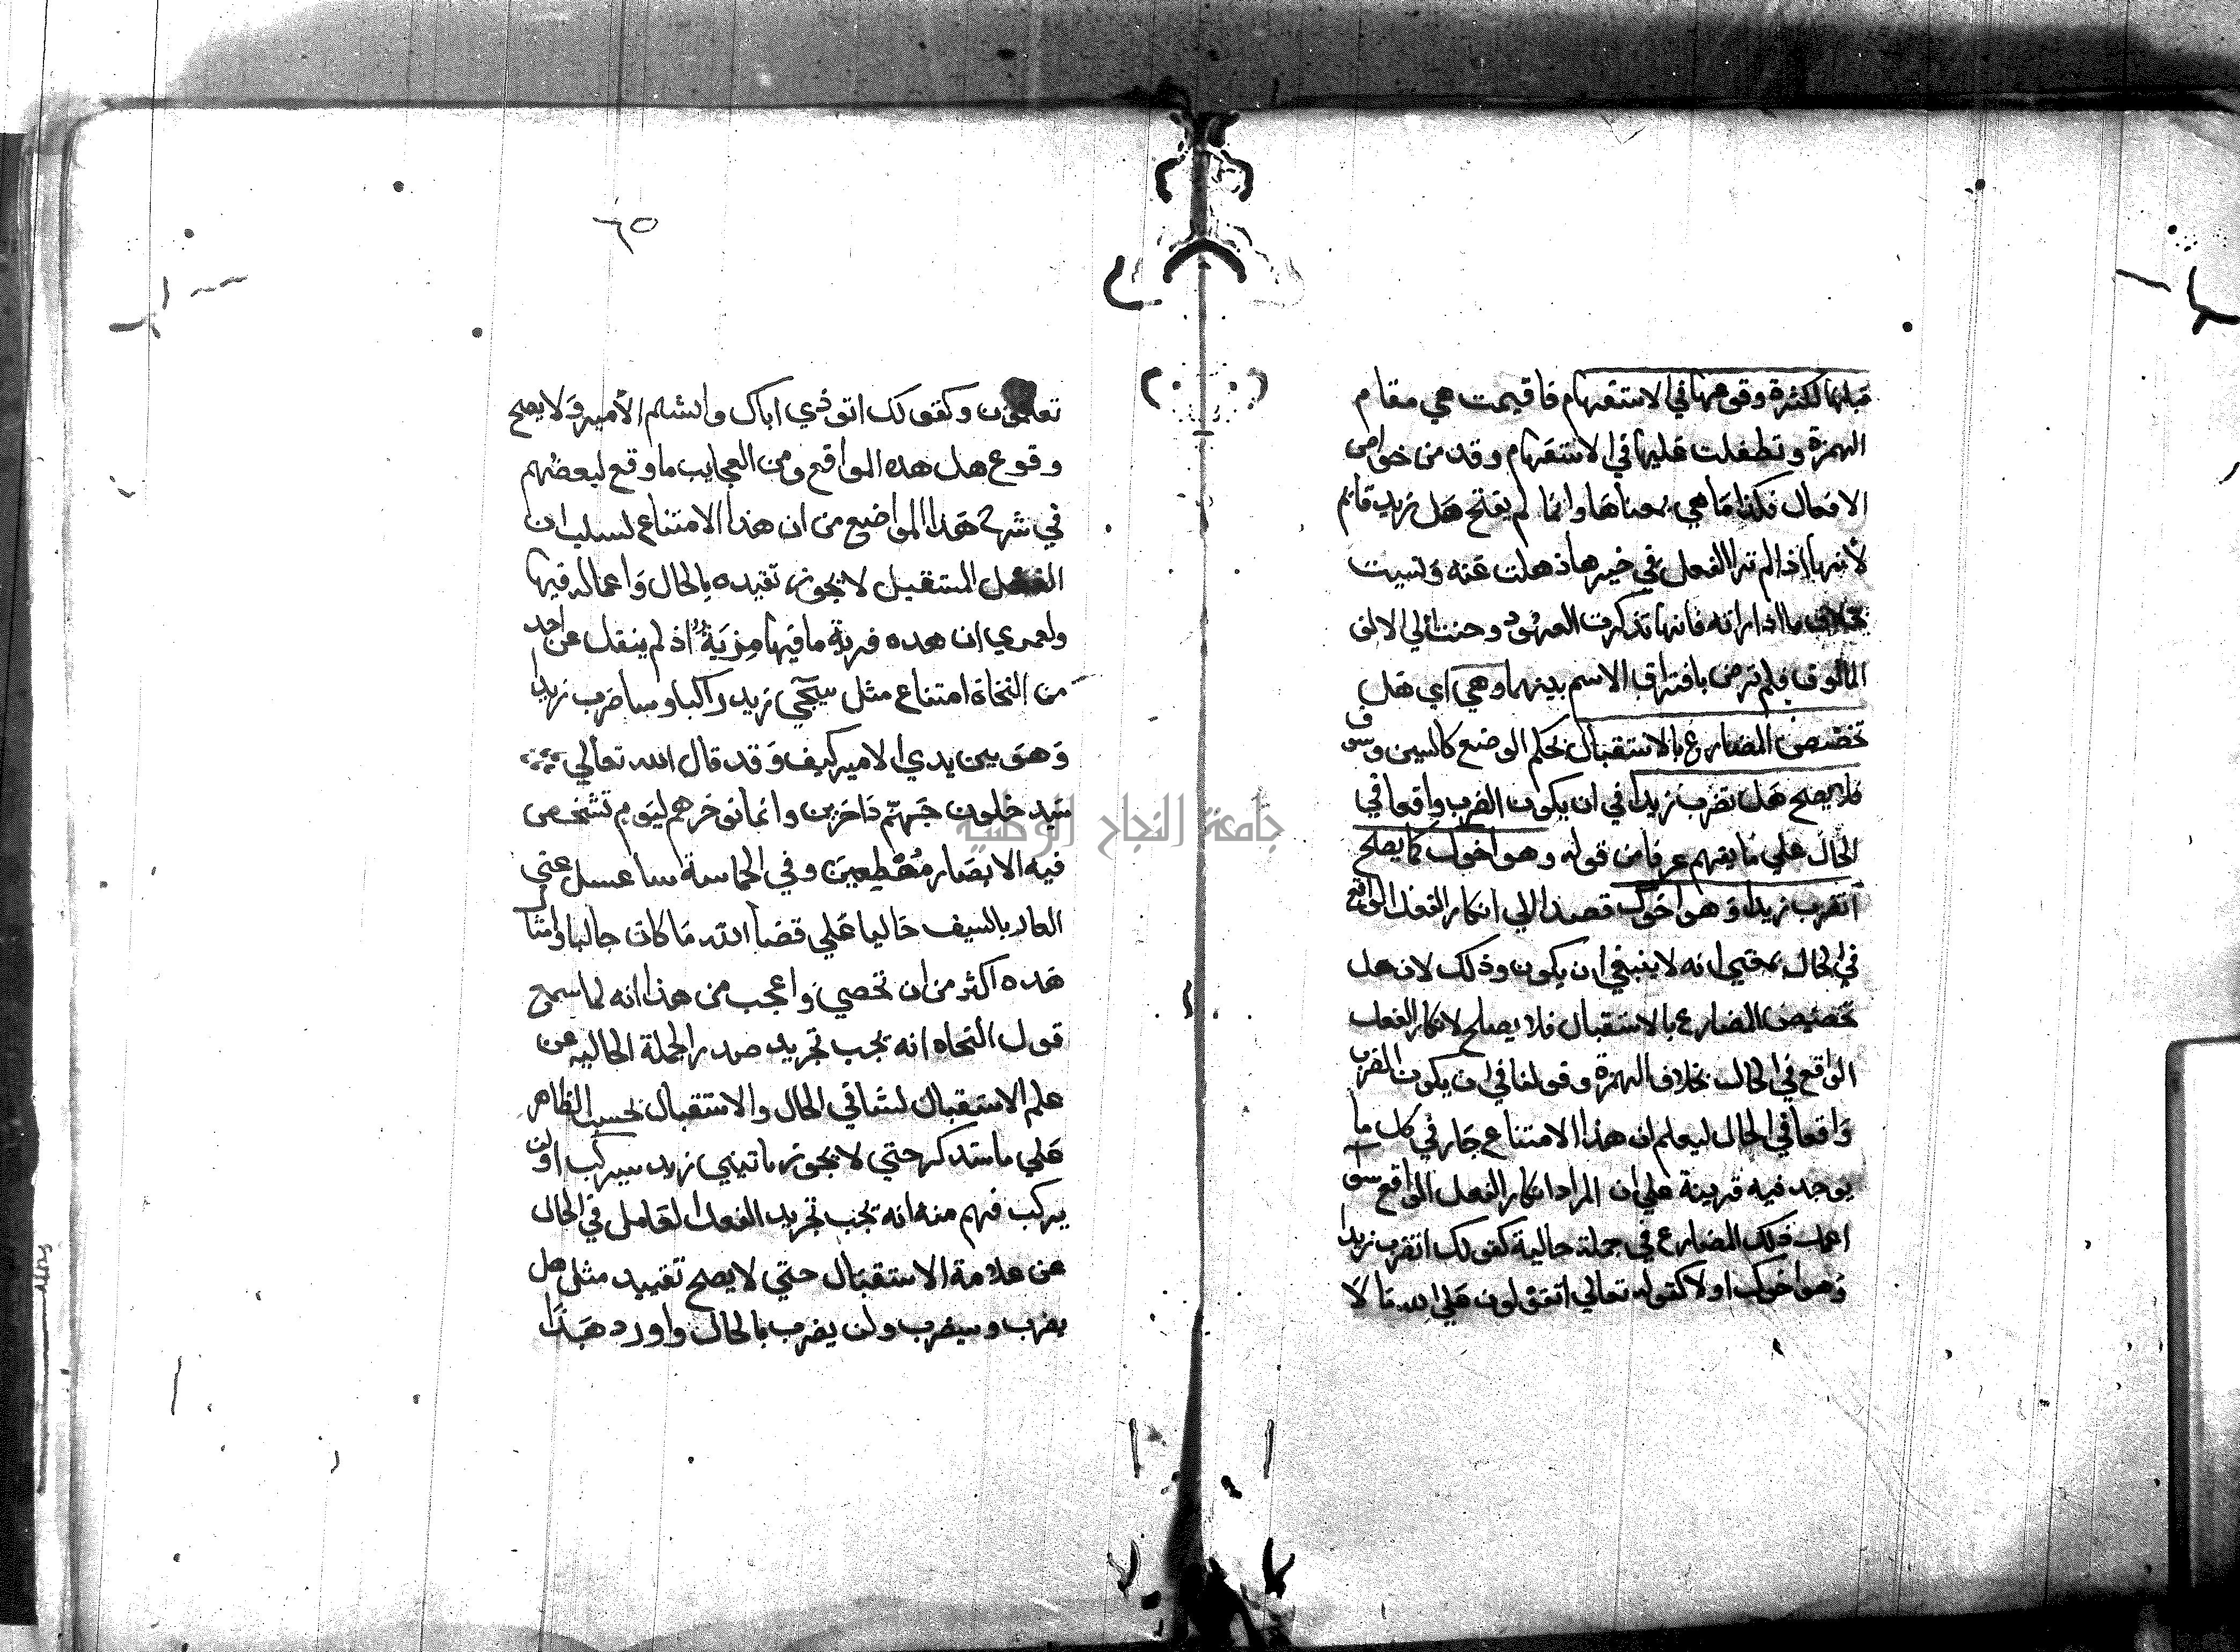 قبلها لكثرة وقوعها في الاستفهام فاقيمت هي مقام
الهمزة وتطفلت عليها في الاستفهام وقد من خواص
الافعال فكذا ما هي بمعناها وانما لم يقبح هل زيد قائم
لأنها اذا لم تر الفعل في خيرها ذهلت عنه ونسيت
بخلاف ما اذا راته فانها تذكرت العهود وحنت الي الالف
المألوف فلم ترض بافتراق الاسم بينهما وهي اي هل
تخصص المضارع بالاستقبال بحكم الوضع كالسين وسوف
فلا يصلح هل تضرب زيدا في ان يكون الضرب واقعا في
الحال علي ما يفهم عرفا من قوله وهو اخوك كما يصلح
اتضرب زيدا وهو اخوك قصدا الي انكار الفعل الواقع
في الحال بمعني انه لا ينبغي ان يكون وذلك لان هل
تخصيص المضارع بالاستقبال فلا يصلح لانكار الفعل
الواقع في الحال بخلاف الهمزة وقولنا في ان يكون الضرب
واقعا في الحال ليعلم ان هذا الامتناع جار في كل ما
يوجد فيه قرينة علي ان المراد انكار الفعل الواقع سوا
اعملت ذلك المضارع في جملة حالية كقولك اتضرب زيدا
وهو اخوك اولا كقوله تعالي اتقولون علي الله ما لا
٦٥
تعلمون وكقولك اتوذي اباك واتشتم الأمير ولا يصلح
وقوع هل هذه المواقع ومن العجايب ما وقع لبعضهم
في شرح هذا المواضع من ان هذا الامتناع لسبب ان
الفعل المستقبل لا يجوز تقيده بالحال واعماله فيها
ولعمري ان هذه فرية ما فيها مزية اذ لم ينقل عن احد
من النحاة امتناع مثل سيجي زيد راكبا وساضرب زيدا
وهو بين يدي الامير كيف وقد قال الله تعالي
سيدخلون جهنم داخرين وانما نوخرهم ليوم تشخص
فيه الابصار مهطعين وفي الحماسة ساغسل عني
العار بالسيف جالبا علي قضا الله ما كان جالبا وامثال
هذه اكثر من ان تحصي واعجب من هذا انه لما سمع
قول النحاه انه يجب تجريد صدر الجملة الحاليه عن
علم الاستقبال لتنافي الحال والاستقبال بحسب الظاهر
علي ما سنذكر حتي لا يجوز ياتيني زيد سيركب او لن
يركب فهم منه انه يجب تجريد الفعل العامل في الحال
عن علامة الاستقبال حتي لا يصلح تقييد مثل هل
يضرب وسيضرب ولن يضرب بالحال واورد هذا
جامعة النجاح الوطنية